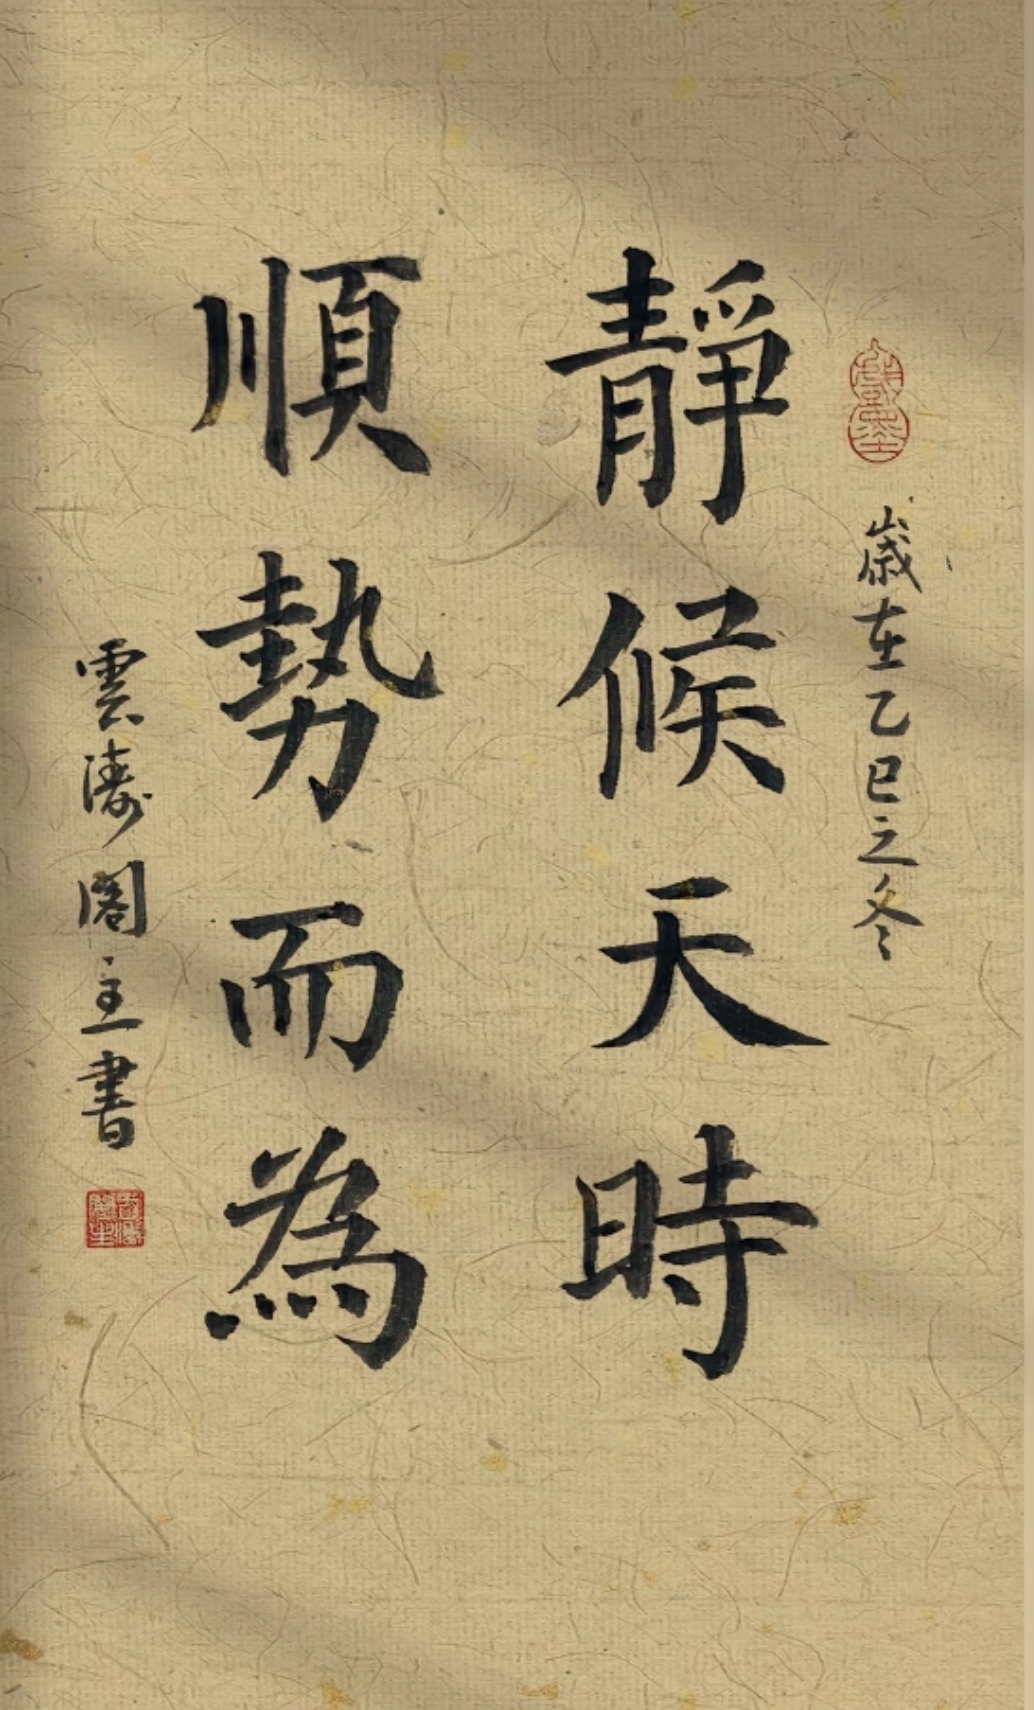 歲在乙巳之冬
靜候天時
順勢而為
雲濤閣主書